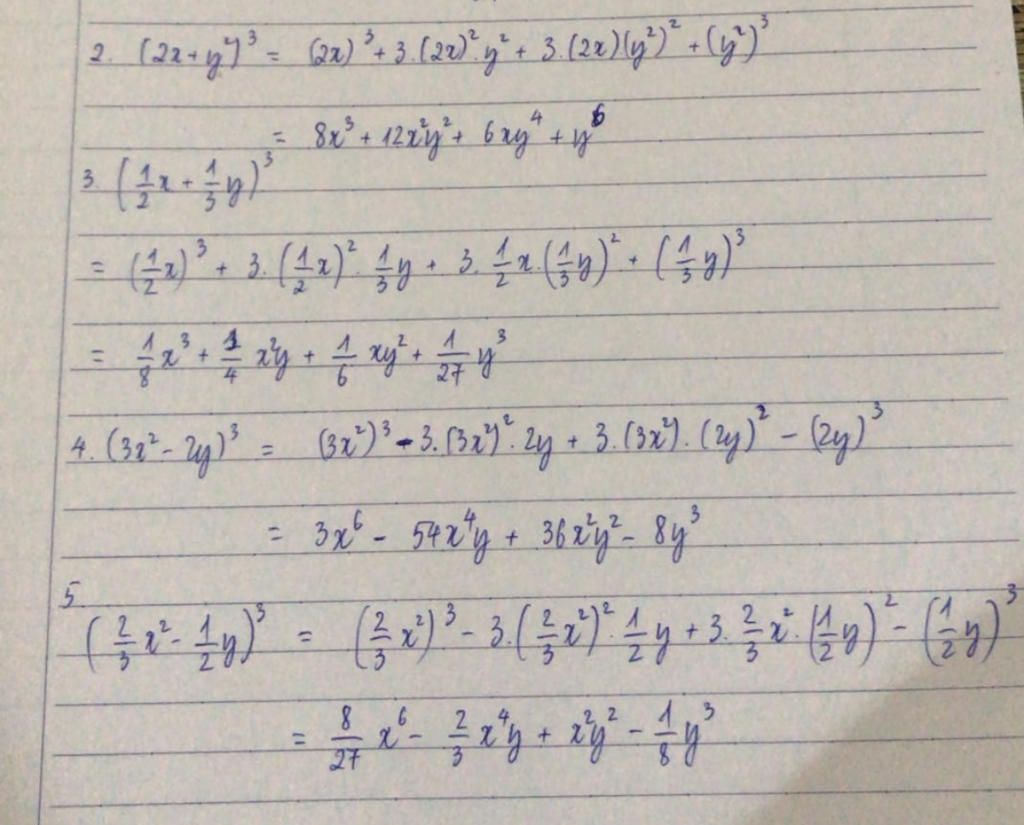 2. (2x + y²)³ = (2x)³ + 3.(2x)².y² + 3.(2x)(y²)² + (y²)³
= 8x³ + 12x²y² + 6xy⁴ + y⁶
3. (1/2 x + 1/3 y)³
= (1/2 x)³ + 3.(1/2 x)². 1/3 y + 3. 1/2 x.(1/3 y)² + (1/3 y)³
= 1/8 x³ + 1/4 x²y + 1/6 xy² + 1/27 y³
4. (3x² - 2y)³ = (3x²)³ - 3.(3x²)².2y + 3.(3x²).(2y)² - (2y)³
= 3x⁶ - 54x⁴y + 36x²y² - 8y³
5.
(2/3 x² - 1/2 y)³ = (2/3 x²)³ - 3.(2/3 x²)². 1/2 y + 3. 2/3 x².(1/2 y)² - (1/2 y)³
= 8/27 x⁶ - 2/3 x⁴y + x²y² - 1/8 y³